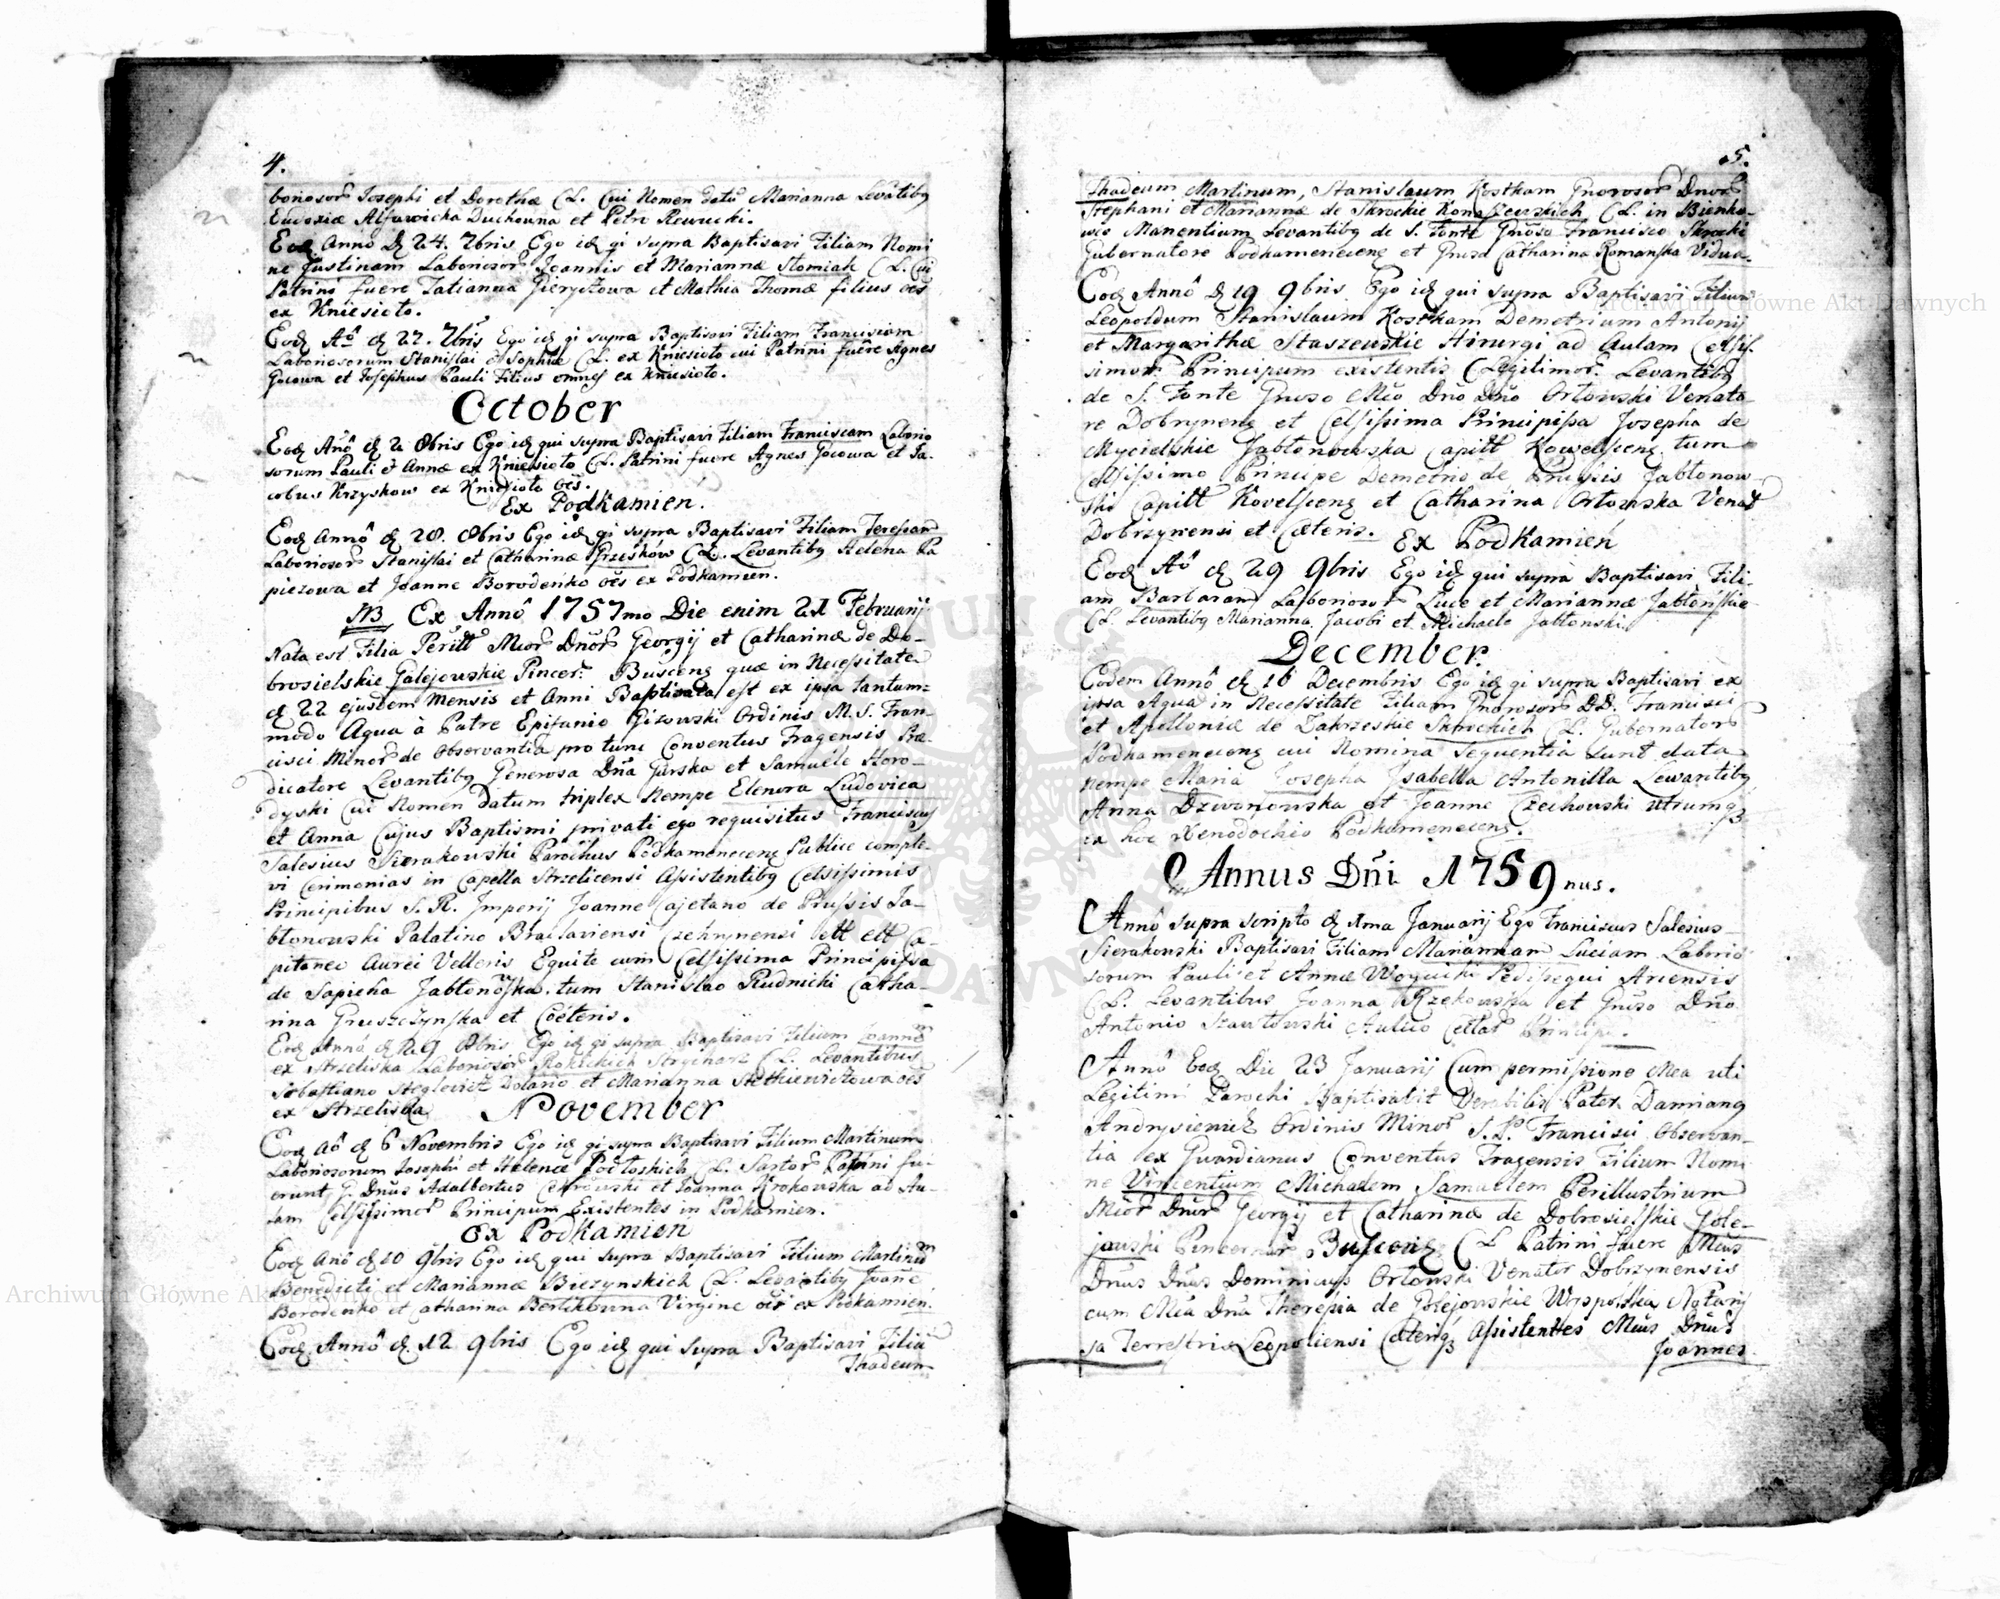 4.
borosor Josephi et Dorothæ C.L. Cui Nomen datū Marianna Levātibq
Eudoxiæ Duchowna et Petro
Eod Anno d 24. 7bris Ego id qi supra Baptisavi Filiam Nomi
ne Justinam Laboriosor Joannis et Mariannæ Słomiak C.L. Cui
Patrini fuere Tatianna et Mathia Thomæ filius oēs
ex Kniesioło.
Eod Aō d 22. 7bris Ego id qi supra Baptisavi Filiam Franciscam
Laboriosorum Stanislai et Sophiæ C.L. ex Kniesioło cui Patrini fuêre Agnes
Gocowa et Josephus Pauli Filius omnes ex Kniesioło.
October
Eod Añō d 2 8bris Ego id qui supra Baptisavi Filiam Franciscam Laborio
sorum Pauli et Annæ ex Kniesioło C.L. Patrini fuere Agnes Gocowa et Ja-
cobus Krzyskow ex Kniesioło oēs.
Ex Podkamien.
Eod Annô d 28. 8bris Ego id qi supra Baptisavi Filiam Teressam
Laboriosor Stanislai et Catharinæ Grześkow C.L. Levantibq Helena Pa
piezowa et Joanne Borodenko oēs ex Podkamien.
NB Ex Annô 1757mo Die enim 21 Februarij
Nata est Filia Perill Mcor Dnōr Georgij et Catharinæ de Do-
brosielskie Golejowskie Pincer. Busceng quæ in Necessitate
d 22 ejusdem Mensis et Anni Baptisata est ex ipsa tantum=
modo Aqua à Patre Epifanio Gizowski Ordinis M.S. Fran-
cisci Minor de Observantia pro tunc Conventus Fragensis Præ-
dicatore Levantibq Generosa Dña Gurska et Samuele Horo-
dyski cui Nomen datum triplex Nempe Elenora Ludovica
et Anna Cujus Baptismi privati ego requisitus Franciscus
Salesius Sierakowski Parochus Podkameneceng Publice comple-
vi Cerimonias in Capella Strzelicensi Assistentibq Celsissimis
Principibus S.R. Imperij Joanne Cajetano de Prussis Ja-
błonowski Palatino Braclaviensi Czehrynensi ett ett Ca-
pitaneo Aurei Velleris Equite cum Celsissima Principissa
de Sapieha Jabłonōska. tum Stanislao Rudnicki Catha-
rina Gruszczynska et Cœteris.
Eod Annô d 29 8bris Ego id qi supra Baptisavi Filium Joannē
ex Strzeliska Laboriosor Strycharz C.L. Levantibus
Sebastiano et Marianna oēs
ex Strzeliska
November
Eod Aō d 6 Novembris Ego id qi supra Baptisavi Filium Martinum
Laboriosorum Josephi et Helenæ C.L. Sartor Patrini fu-
erunt G. Dnūs Adalbertus et Joanna Krokowska ad Au-
lam Celsissimor Principum Existentes in Podkamien.
Ex Podkamien
Eod Anō d 10 9bris Ego id qui supra Baptisavi Filium Martinū
Benedicti et Mariannæ Biezynskich C.L. Levātibq Joañe
Borodenko et Catharina Virgine oēs ex Podkamien.
Eod Annô d. 12 9bris Ego id qui supra Baptisavi Filiū
Thadeum
5.
Thadeum Martinum, Stanislaum Kostkam Gnorosor Dnor
Stephani et Mariannæ de Skrockie C.L. in Bienko-
wce Manentium Levantibq de S. Fonte Gnōso Francisco Skrocki
Gubernatore Podkameneceng et Gnosa Catharina Romanska Vidua.
Eod Annô d 19 9bris Ego id qui supra Baptisavi Filium
Leopoldum Stanislaum Kostkam Demetrium Antonij
et Margarithæ Staszewskie Hirurgi ad Aulam Celsis-
simor Principum existentis C Legitimor. Levantibq
de S. Fonte Gnoso Mco Dno Dno Orłowski Venato-
re Dobrynens et Celsissima Principissa Josepha de
Mycielskie Jabłonowska Capitt Kowelsceng tum
Celsissimo Principe Demetrio de Prussis Jabłonow-
ski Capitt Kovelsceng et Catharina Orłowska Venat
Dobrzynensi et Cæteris.
Ex Podkamien
Eod Aô d 29 9bris Ego id qui supra Baptisavi Fili-
am Barbaram Laboriosor Lucæ et Mariannæ Jabłońskie
C.L. Levantibq Marianna Jacobi et Michaele Jabłonski.
December.
Eodem Annô d 16 Decembris Ego id qi supra Baptisavi ex
ipsa Aqua in Necessitate Filiam Gnorosor DD. Francisci
et Apolloniæ de Zakrzeskie Skrockich C.L. Gubernator
Podkameneceng cui Nomina Sequentia sunt data
nempe Maria Josepha Isabella Antonilla Levantibq
Anna Dzwonowska et Joanne Czechowski utrumq
ex hoc Xenodochio Podkameneceng.
Annus Dñi 1759nus.
Annô supra scripto d 1ma Januarij Ego Franciscus Salesius
Sierakowski Baptisavi Filiam Mariannam Luciam Laborio
sorum Pauli et Annæ Pedissequi Arcensis
C.L. Levantibus Joanna Rzekowska et Gnōso Dño
Antonio Szawłowski Aulico Principis.
Annô Eod Die 23 Januarij Cum permissione Mea uti
Legitimi Parochi Baptisabit Venerabilis Pater Damianq
Andrysiewicz Ordinis Minor S.P. Francisci Observan-
tiæ ex Guardianus Conventus Fragensis Filium Nomi
ne Vincentium Michaelem Samuelem Perillustrium
Mcor Dnōr Georgij et Catharinæ de Dobrosielskie Gole-
jowski Pincernar Busceng C L Patrini fuere Mcus
Dnus Dnus Dominicus Orłowski Venator Dobrzynensis
cum Mca Dna Theresia de Golejowskie Wyspolska Notary
sa Terrestris Leopoliensi Cæterisq Assistentes Mcus Dnus
Joannes
Archiwum Główne Akt Dawnych
Archiwum Główne Akt Dawnych